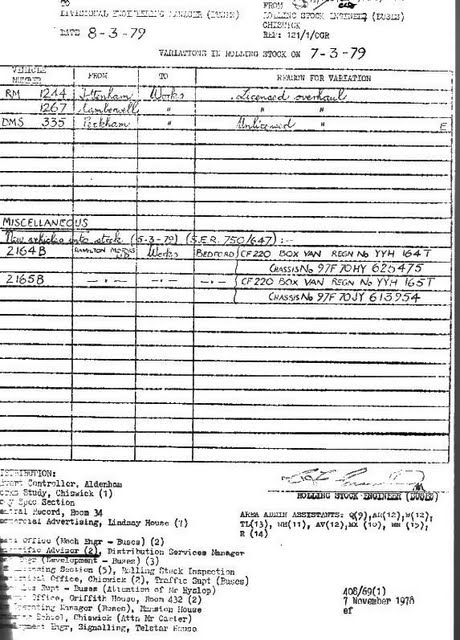 TO FROM
DIVISIONAL ENGINEERING MANAGER (BUSES) ROLLING STOCK ENGINEER (BUSES)
CHISWICK
DATE 8-3-79 Ref: 121/1/CGR
VARIATIONS IN ROLLING STOCK ON 7-3-79
VEHICLE NUMBER FROM TO REASON FOR VARIATION
RM 1244 Tottenham Works Licensed overhaul
1267 Camberwell " " "
DMS 335 Peckham " Unlicensed " E
MISCELLANEOUS
New vehicles into stock (5-3-79) (S.E.R. 750/647) :-
2164B HAMILTON MOTORS Works BEDFORD CF220 BOX VAN REGN No YYH 164T
CHASSIS No 97F70HY 625475
2165B — " — — " — — " — CF220 BOX VAN REGN No YYH 165T
CHASSIS No 97F70JY 613954
DISTRIBUTION:
Controller, Aldenham
Study, Chiswick (1)
Spec Section
Central Record, Room 34
Commercial Advertising, Lindsay House (7)
Office (Mech Engr - Buses) (2)
Advisor (2), Distribution Services Manager
(Development - Buses) (3)
Section (5), Rolling Stock Inspection
Office, Chiswick (2), Traffic Supt (Buses)
Supt - Buses (Attention of Mr Hyslop)
Office, Griffith House, Room 432 (2)
Operating Manager (Buses), Mansion House
School, Chiswick (Attn Mr Carter)
Engr, Signalling, Telstar House
ROLLING STOCK ENGINEER (BUSES)
AREA ADMIN ASSISTANTS: Q(9), AH(12), W(12),
TL(13), HH(11), AV(12), MX (10), WH (15),
R (14)
408/69(1)
7 November 1978
ef